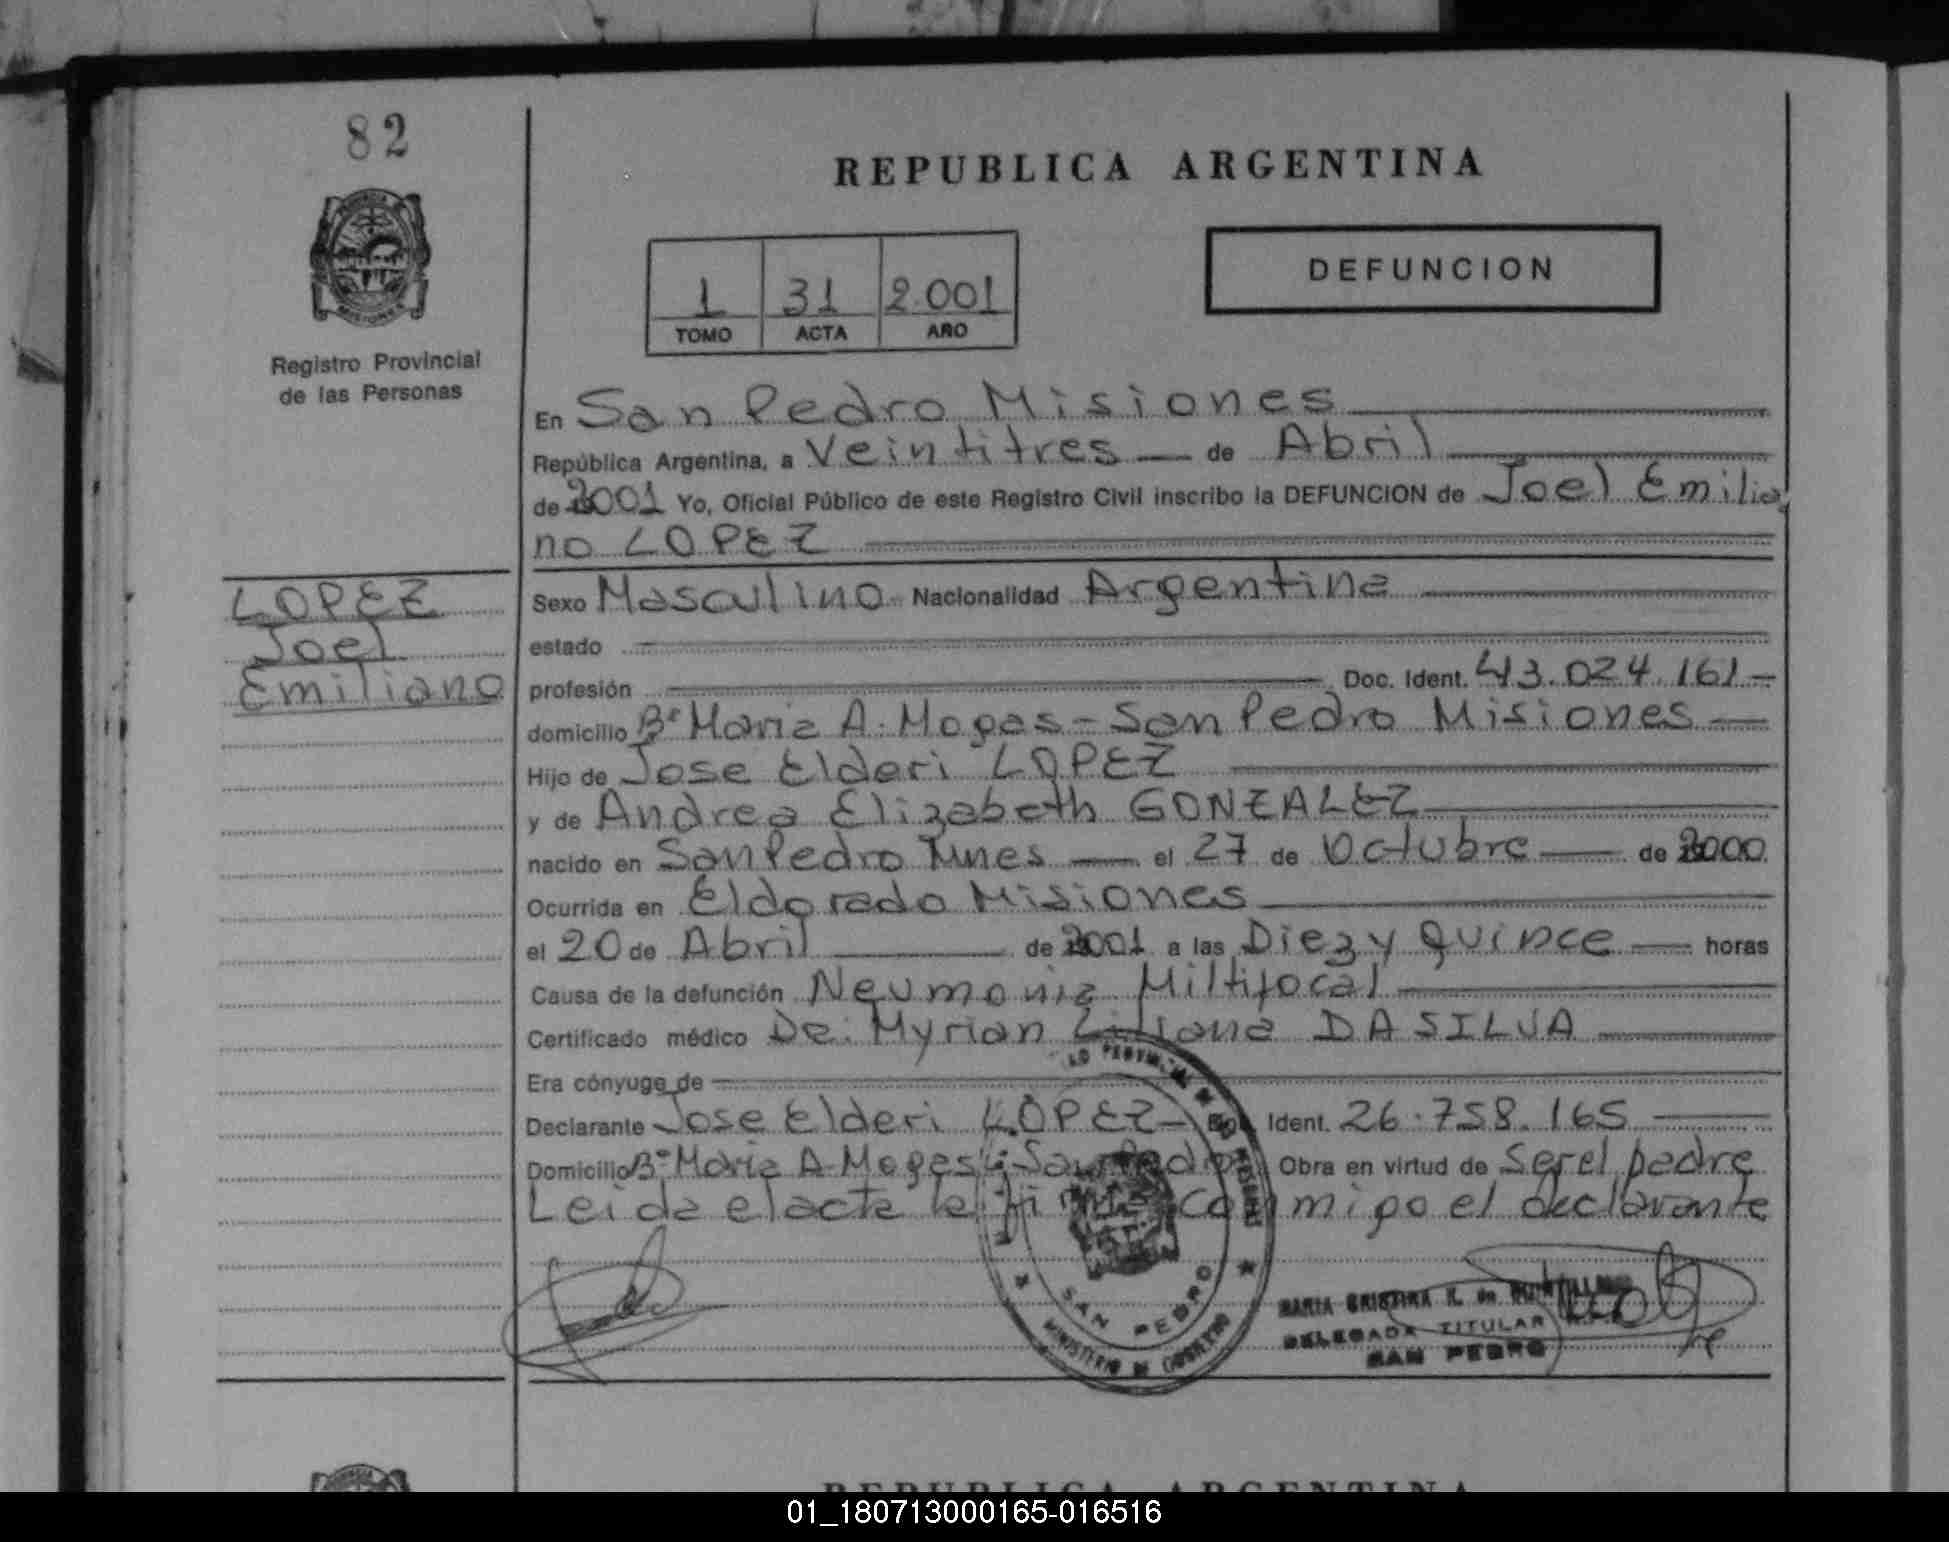 82
REPUBLICA ARGENTINA
1 31 2.001
TOMO ACTA AÑO
DEFUNCION
Registro Provincial
de las Personas
En San Pedro Misiones
República Argentina, a Veintitres de Abril
de 2001 Yo, Oficial Público de este Registro Civil inscribo la DEFUNCION de Joel Emilia
no LOPEZ
LOPEZ
Joel
Emiliano
Sexo Masculino Nacionalidad Argentina
estado
profesión Doc. Ident. 43.024.161
domicilio Bº Maria A. Mogas - San Pedro Misiones
Hijo de Jose Elderi LOPEZ
y de Andrea Elizabeth GONZALEZ
nacido en San Pedro Mnes el 27 de Octubre de 2000
Ocurrida en Eldorado Misiones
el 20 de Abril de 2001 a las Diez y quince horas
Causa de la defunción Neumonia Miltifocal
Certificado médico De: Myrian Liliana DA SILVA
Era cónyuge de
Declarante Jose Elderi LOPEZ Doc. Ident. 26.758.165
Domicilio Bº Maria A. Moges - San Pedro Obra en virtud de Ser el padre
Leida el acta la firma conmigo el declarante
SAN PEDRO
MINISTERIO DE GOBIERNO
MARIA CRISTINA K. de
DELEGADA TITULAR
SAN PEDRO
REPUBLICA ARGENTINA
01_180713000165-016516